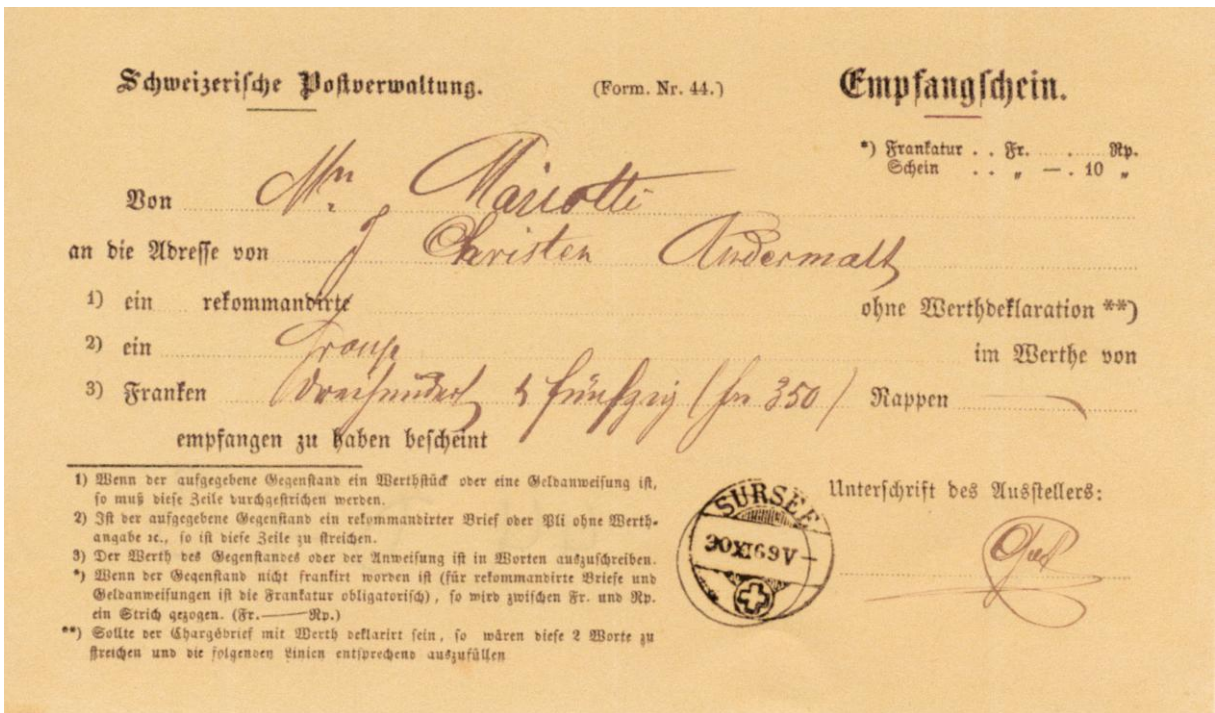 Schweizerische Postverwaltung. (Form. Nr. 44.) Empfangschein.
*) Frankatur . . Fr. . Rp.
Schein . . „ — . 10 „
Von Mariotti
an die Adresse von J Christen Andermatt
1) ein rekommandirte ohne Werthdeklaration **)
2) ein Group im Werthe von
3) Franken dreihundert & fünfzig (fr 350) Rappen —
empfangen zu haben bescheint
1) Wenn der aufgegebene Gegenstand ein Werthstück oder eine Geldanweisung ist,
so muß diese Zeile durchgestrichen werden.
2) Ist der aufgegebene Gegenstand ein rekommandirter Brief oder Pli ohne Werth-
angabe ꝛc., so ist diese Zeile zu streichen.
3) Der Werth des Gegenstandes oder der Anweisung ist in Worten auszuschreiben.
*) Wenn der Gegenstand nicht frankirt worden ist (für rekommandirte Briefe und
Geldanweisungen ist die Frankatur obligatorisch), so wird zwischen Fr. und Rp.
ein Strich gezogen. (Fr.——Rp.)
**) Sollte der Chargébrief mit Werth deklarirt sein, so wären diese 2 Worte zu
streichen und die folgenden Linien entsprechend auszufüllen
SURSEE
Unterschrift des Ausstellers: